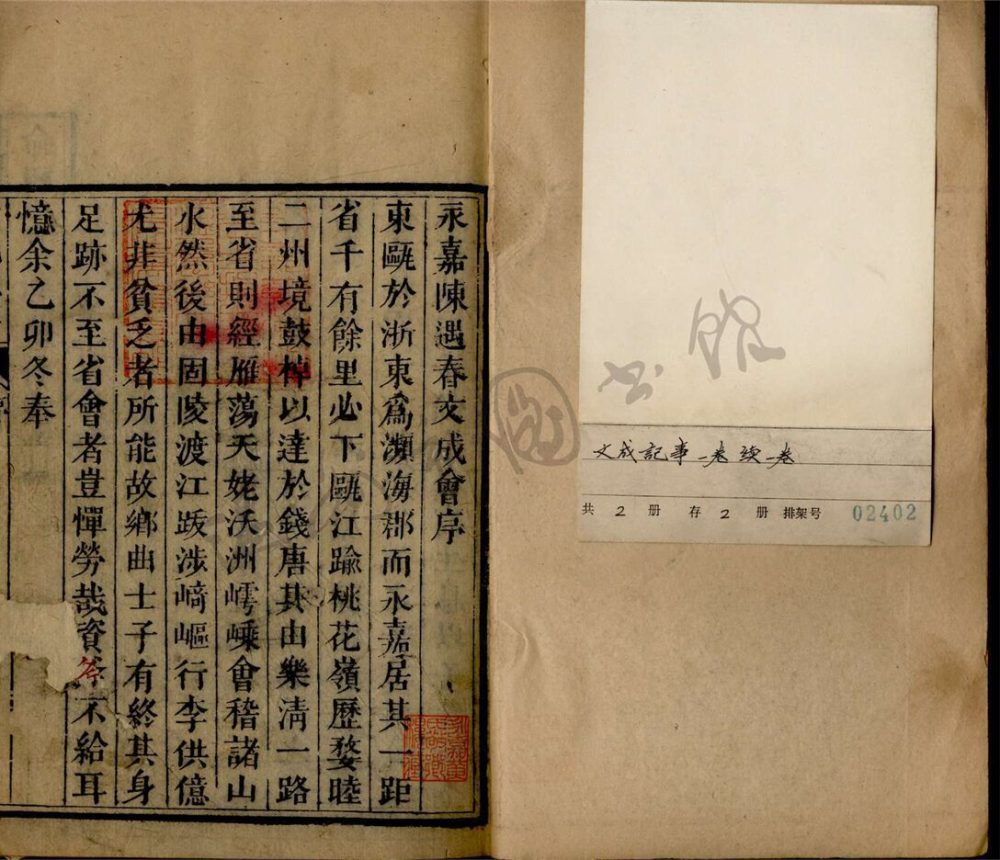 永嘉陳遇春文成會序
東甌於浙東爲瀕海郡而永嘉居其一距
省千有餘里必下甌江踰桃花嶺歷婺睦
二州境鼓棹以達於錢唐其由樂淸一路
至省則經雁蕩天姥沃洲嶀嵊會稽諸山
水然後由固陵渡江跋涉﨑嶇行李供億
尤非貧乏者所能故鄉曲士子有終其身
足跡不至省會者豈憚勞哉資斧不給耳
憶余乙卯冬奉
文成記事一卷 续一卷
共 2 册 存 2 册 排架号 02402